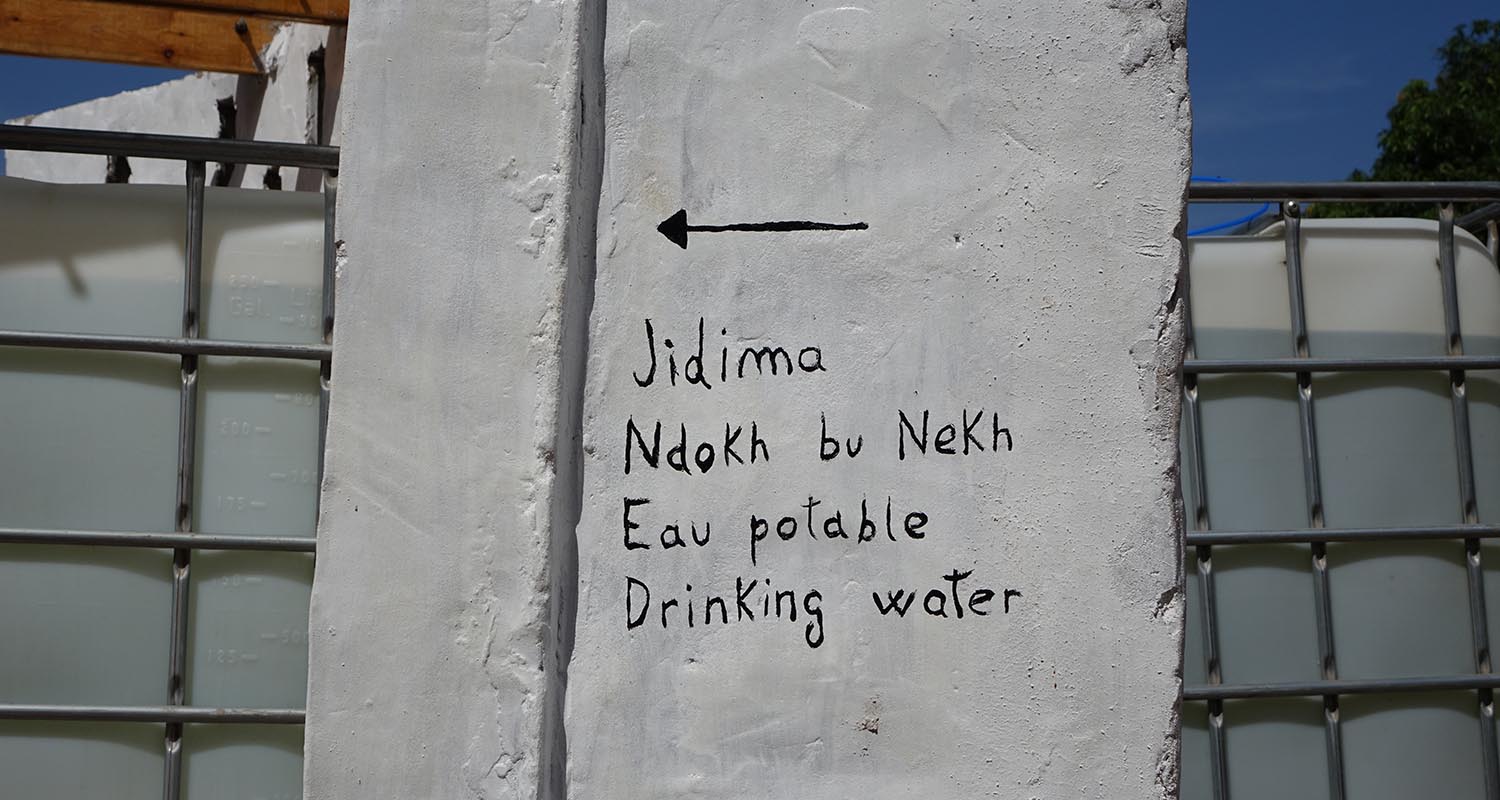 Jidima
Ndokh bu Nekh
Eau potable
Drinking water
200
175